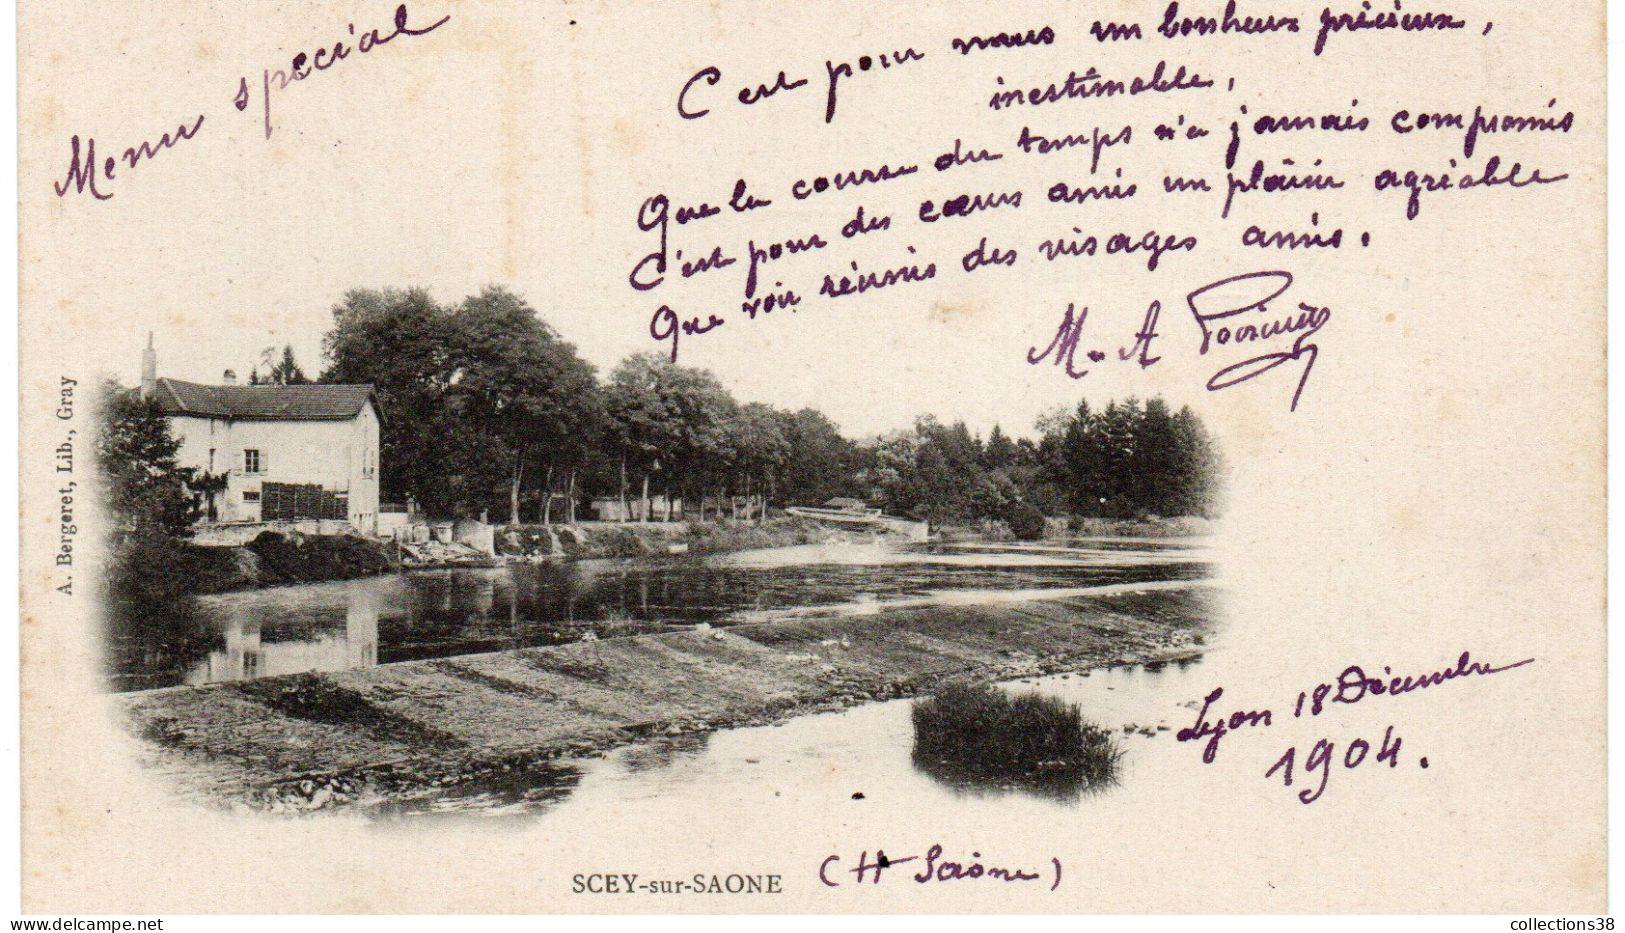 Menu special
C'est pour nous un bonheur précieux,
inestimable,
Que le cours du temps n'a jamais compromis
C'est pour des cœurs amis un plaisir agréable
Que voir réunis des visages amis.
M. A
A. Bergeret, Lib., Gray
Lyon 18 Décembre
1904.
SCEY-sur-SAONE (Hte Saône)
collections38